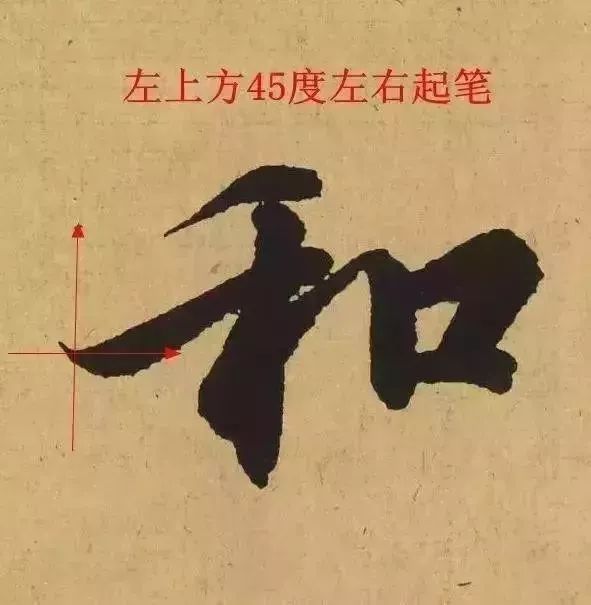 左上方45度左右起笔
和